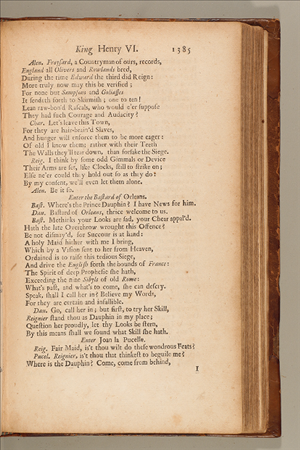 King Henry VI. 1385
Alen. Froysard, a Countryman of ours, records,
England all Olivers and Rowlands bred,
During the time Edward the third did Reign:
More truly now may this be verified;
For none but Sampsons and Goliasses
It sendeth forth to Skirmish; one to ten!
Lean raw-bon'd Rascals, who would e'er suppose
They had such Courage and Audacity?
Char. Let's leave this Town,
For they are hair-brain'd Slaves,
And hunger will enforce them to be more eager:
Of old I know them; rather with their Teeth
The Walls they'll tear down, than forsake the Siege.
Reig. I think by some odd Gimmals or Device
Their Arms are set, like Clocks, still to strike on;
Else ne'er could they hold out so as they do:
By my consent, we'll even let them alone.
Alen. Be it so.
Enter the Bastard of Orleans.
Bast. Where's the Prince Dauphin? I have News for him.
Dau. Bastard of Orleans, thrice welcome to us.
Bast. Methinks your Looks are sad, your Chear appal'd.
Hath the late Overthrow wrought this Offence?
Be not dismay'd, for Succour is at hand:
A holy Maid hither with me I bring,
Which by a Vision sent to her from Heaven,
Ordained is to raise this tedious Siege,
And drive the English forth the bounds of France:
The Spirit of deep Prophesie she hath,
Exceeding the nine Sibyls of old Rome:
What's past, and what's to come, she can descry.
Speak, shall I call her in? Believe my Words,
For they are certain and infallible.
Dau. Go, call her in; but first, to try her Skill,
Reignier stand thou as Dauphin in my place;
Question her proudly, let thy Looks be stern,
By this means shall we sound what Skill she hath.
Enter Joan la Pucelle.
Reig. Fair Maid, is't thou wilt do these wondrous Feats?
Pucel. Reignier, is't thou that thinkest to beguile me?
Where is the Dauphin? Come, come from behind,
I